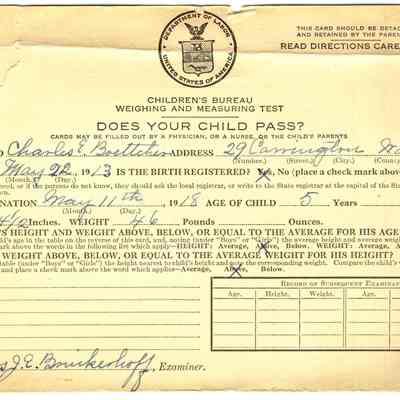 THIS CARD SHOULD BE DETAC
AND RETAINED BY THE PAREN
READ DIRECTIONS CARE
DEPARTMENT OF LABOR
UNITED STATES OF AMERICA
CHILDREN'S BUREAU
WEIGHING AND MEASURING TEST
DOES YOUR CHILD PASS?
CARDS MAY BE FILLED OUT BY A PHYSICIAN, OR A NURSE, OR THE CHILD'S PARENTS
Charles E. Boettcher ADDRESS 29 Carrington
(Number.) (Street.) (City.) (County
May 22, 1913 IS THE BIRTH REGISTERED? Yes, No (place a check mark above
(Month.) (Day.) (Year.)
d, or if the parents do not know, they should ask the local registrar, or write to the State registrar at the capital of the Stat
NATION May 11th, 1918 AGE OF CHILD 5 Years,
(Month.) (Day.) (Year.)
Inches. WEIGHT 46 Pounds Ounces.
'S HEIGHT AND WEIGHT ABOVE, BELOW, OR EQUAL TO THE AVERAGE FOR HIS AGE
ild's age in the table on the reverse of this card, and, noting (under "Boys" or "Girls") the average height and average
mark above the words in the following list which apply—HEIGHT: Average, Above, Below. WEIGHT: Average, Above,
S WEIGHT ABOVE, BELOW, OR EQUAL TO THE AVERAGE WEIGHT FOR HIS HEIGHT?
table (under "Boys" or "Girls") the height nearest to child's height and note the corresponding weight. Compare the child's
and place a check mark above the word which applies—Average, Above, Below.
RECORD OF SUBSEQUENT EXAMINAT
Age. Height. Weight. Age. H
J. E. Brinkerhoff, Examiner.